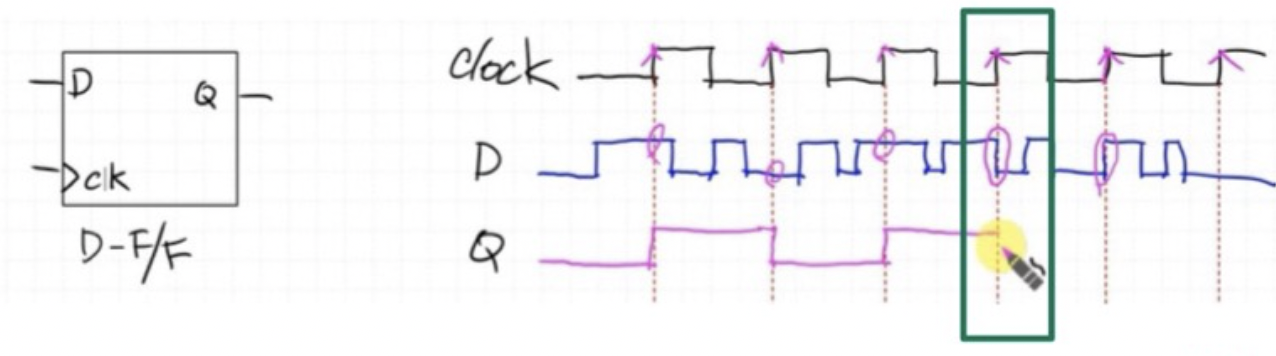 D
Q
clk
D-F/F
clock
D
Q